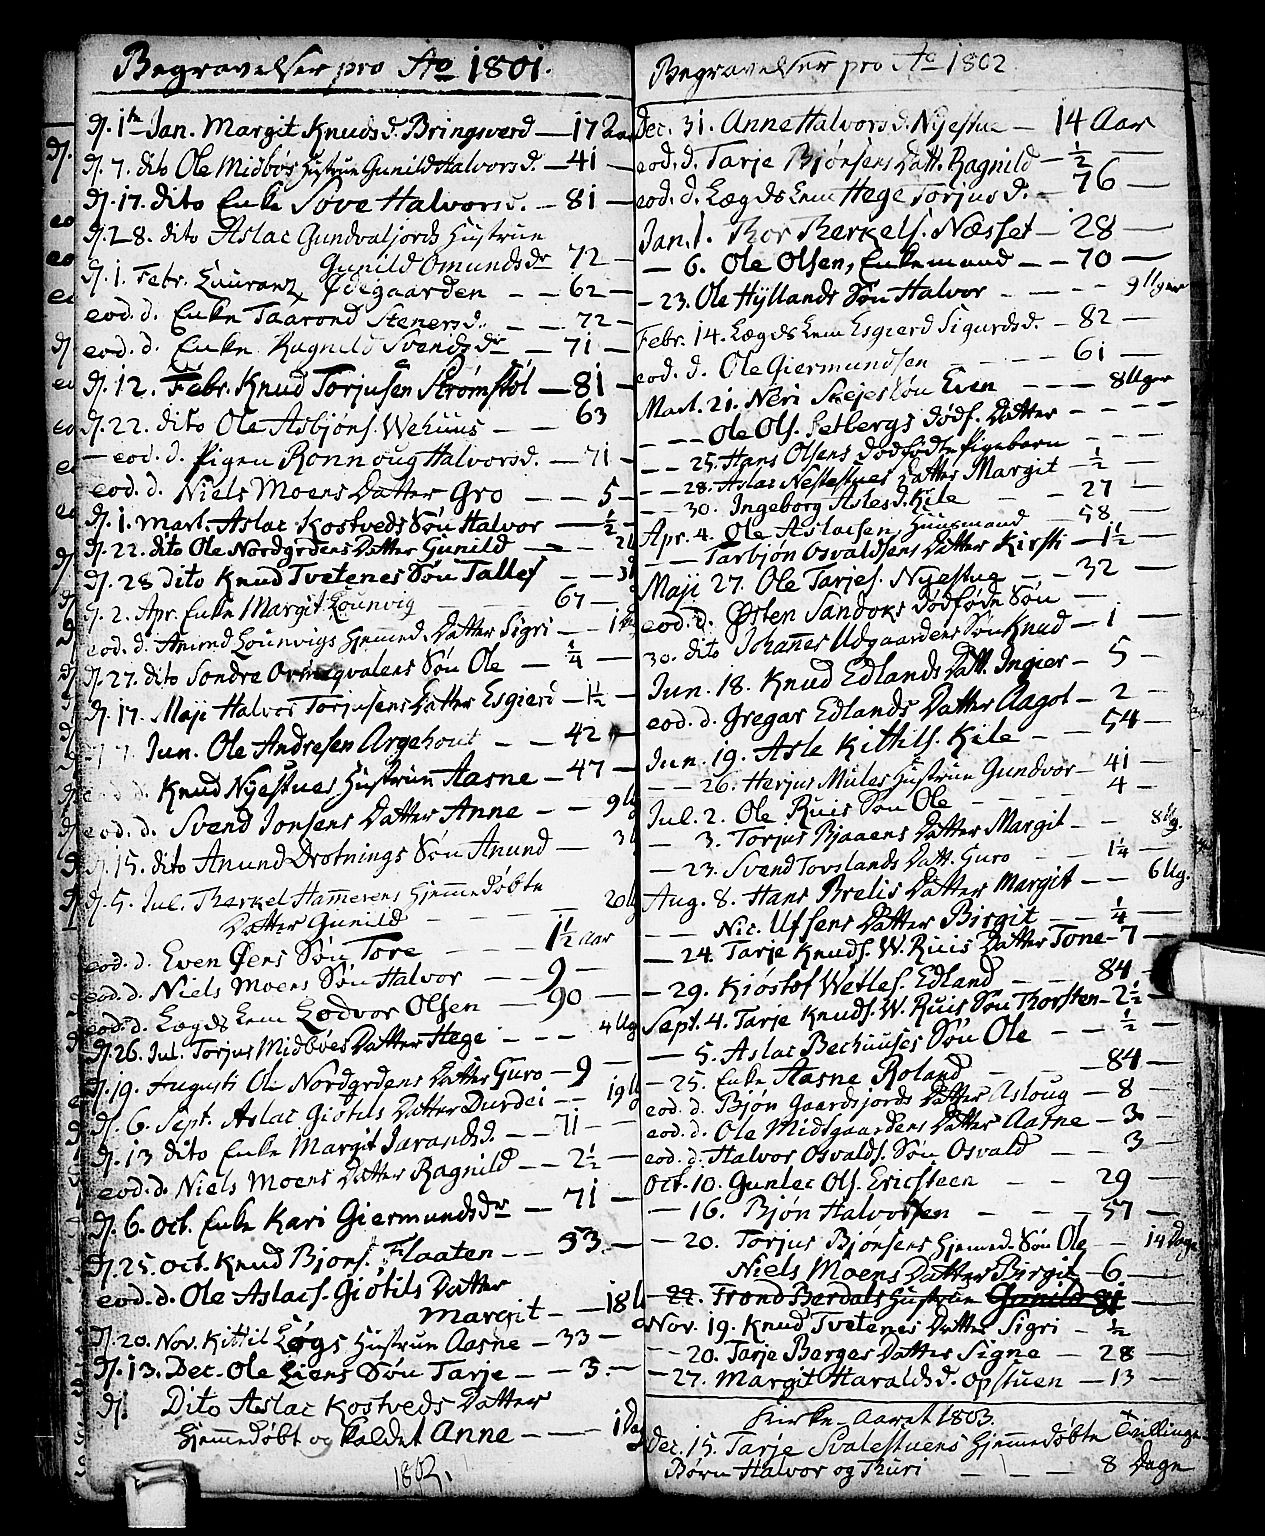 Begravelser pro Ao 1801.
D. 1te Jan. Margit Knudsd. Bringsverd — 17 Aar
D. 7. dito Ole Midbøs Hustrue Gunild Halvorsd. — 41 —
D. 17. dito Enke Søve Halvorsd. — 81 —
D. 28. dito Aslac Gundvalsjords Hustrue
Gunild Omundsdr 72 —
D. 1. Febr. Lauranz Ødegaarden — — 62 —
eod. d. Enke Taarond Stenersd. — — 72 —
eod. d. Enke Ragnild Svendsdr — 71 —
D. 12. Febr. Knud Torjusen Strømstøl — 81 —
D. 22. dito Ole Asbjøns. Wehuus — — 63
— eod. d. Pigen Rønnoug Halvorsd. — 71 —
eod. d. Niels Moens Datter Gro — — 5 —
D. 1. Mart. Aslac Kostveds Søn Halvor — ½ —
D. 22. dito Ole Nordgrdens Datter Gunild — —
D. 28 dito Knud Tvetenes Søn Tallef — —
D. 2. Apr. Enke Margit Lounvig — 67 —
eod. d. Amund Lounvigs Hjemmed. Datter Sigri — — 1
D. 27. dito Sondre Ormeqvalens Søn Ole — ¼ —
D. 17. Maji Halvor Torjusens Datter Esgierd — 1½ —
D. 7. Jun. Ole Andresen Argehout — — 42 —
eod. d. Knud Nyestues Hustrue Aasne — 47 —
eod. d. Svend Jonsens Datter Anne — — 9
D. 15. dito Anund Drotnings Søn Anund — — 3
D. 5. Jul. Therkel Hammerens Hjemmedøbte
Datter Gunild — — — 20
eod. d. Even Øens Søn Tore — 1½ Aar
eod. d. Niels Moens Søn Halvor — 9 —
eod. d. Lægds Lem Lodvor Olsen — 90 —
D. 26. Jul. Torjus Midbøes Datter Hege — — — 4 Ug
D. 19. Augusti Ole Nordgrdens Datter Guro — 9 —
D. 6. Sept. Aslac Giøtils Datter Durdei — — 19
D. 13 dito Enke Margit Jarandsd. — — 71 —
eod. d. Niels Moens Datter Ragnild — — 2½ —
D. 6. Oct. Enke Kari Giermundsdr — 71 —
D. 25. Oct. Knud Bjons. Flaaten — — 53. —
eod. d. Ole Aslacs. Giøtils Datter
Margit — — 18
D. 20. Nov. Kittil Løgs Hustrue Aasne — 33 —
D. 13. Dec. Ole Liens Søn Tarje — — 3. —
D. Dito Aslac Kostveds Datter
Hjemmedøbt og kaldet Anne — — 1 Dag
1802.
Begravelser pro Ao 1802
Dec. 31. Anne Halvorsd. Nyestue — 14 Aar
eod. d. Tarje Bjønsens Datt. Ragnild — ½ —
eod. d. Lægds Lem Hege Torjusd. — 76 —
Jan. 1. Thor Therkels. Næsset — 28 —
— 6. Ole Olsen, Enkemand — — 70 —
— 23. Ole Hyllands Søn Halvor — — — 9 Uger
Febr. 14. Lægds Lem Esgierd Sigurdsd. — 82 —
eod. d. Ole Giermundsen — — 61 —
Mart. 21. Neri Skejes Søn Even — — — 8 Uger
— — Ole Ols. Setbergs dødf. Datter — — — —
— — 25. Hans Olsens dødfødte Pigebarn — — —
— — 28. Aslac Nestestues Datter Margit — ½ —
— — 30. Ingeborg Aslesd. Kile — — 27 —
Apr. 4. Ole Aslacsen, Huusmand — 58 —
— — Tarbjøn Osvaldsens Datter Kirsti — 1½ —
Maji 27. Ole Tarjes. Nyestug — — 32 —
eod. d. Østen Sandoks dødføde Søn —
30. dito Johannes Udgaardens Søn Knud — 1 —
Jun. 18. Knud Edlands Datt. Ingier — 5 —
eod. d. Gregar Edlands Datter Aagot — 2 —
Jun. 19. Asle Kittils. Kile — — 54 —
— — 26. Herjus Mules Hustrue Gundvor — 41 —
Jul. 2. Ole Ruis Søn Ole — — — 4 —
— 3. Torjus Bjaaens Datter Margit — — 8 Ug.
— 23. Svend Tovslands Datt. Guro — — 1¼ —
Aug. 8. Hans Brelis Datter Margit — — 6 Ug.
— — Nic. Ufsens Datter Birgit — — ¼ —
— 24. Tarje Knuds. W. Ruis Datter Tone — 7 —
— 29. Kjøstof Wetles. Edland — — 84 —
Sept. 4. Tarje Knuds. W. Ruis Søn Thorsten — 2½ —
— 5. Aslac Bechuuses Søn Ole — — ½ —
— 25. Enke Aasne Roland — — 84 —
eod. d. Bjøn Gaardsjords Datter Asloug — 8 —
eod. d. Ole Midtgaardens Datter Aasne — 3 —
eod. d. Halvor Osvalds. Søn Osvald — — 3 —
Oct. 10. Gunlec Ols. Ericsteen — — 29 —
— 16. Bjøn Halvorsen — — 57 —
— 20. Torjus Bjønsens Hjemmed. Søn Ole — 14 Dage
Niels Moens Datter Birgit — 6 —
— 22. Trond Berdals Hustrue Gunild 81 —
Nov. 19. Knud Tvetenes Datter Sigri — ½ —
— 20. Tarje Berges Datter Signe — 28 —
— 27. Margit Haraldsd. Opstuen — 13 —
Kirke-Aaret 1803.
Dec. 15. Tarje Svalestuens Hjemmedøbte Tvillinge
Børn Halvor og Thuri — — — 8 Dage